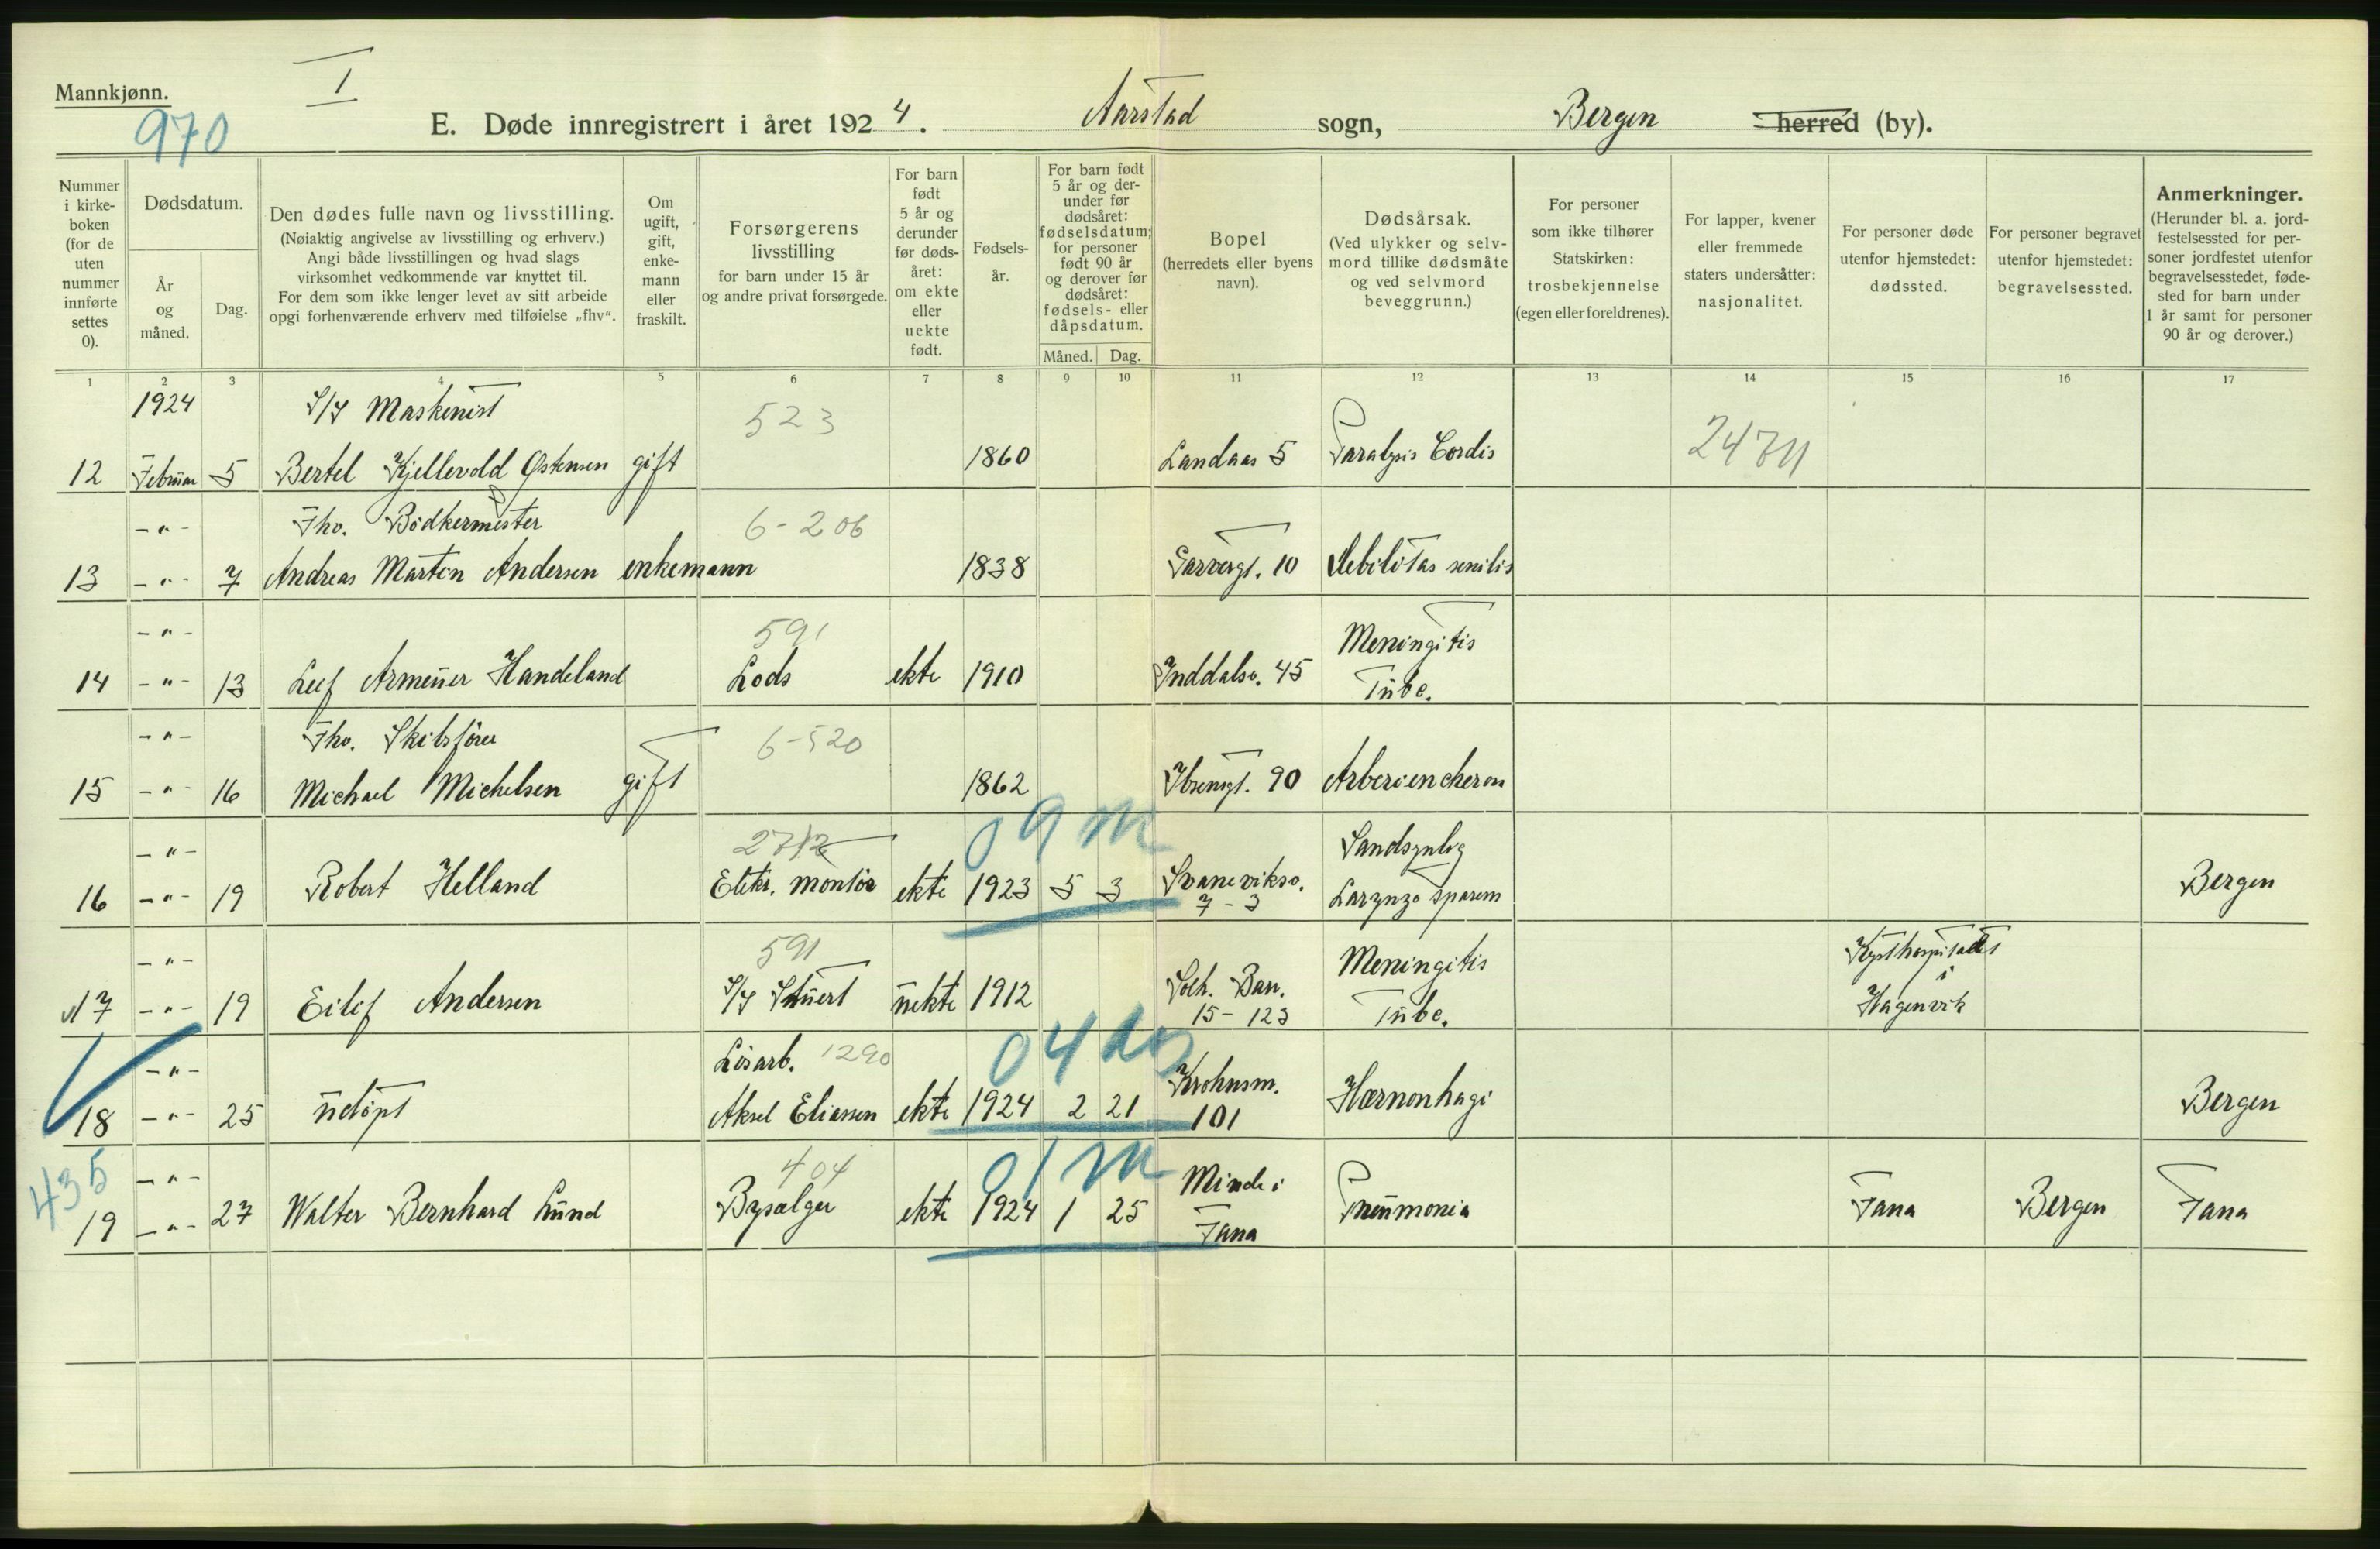 Mannkjønn.
I
970
E. Døde innregistrert i året 1924. Aarstad sogn, Bergen herred (by).
Nummer i kirke-boken (for de uten nummer innførte settes 0).
Dødsdatum.
År og måned.
Dag.
Den dødes fulle navn og livsstilling.
(Nøiaktig angivelse av livsstilling og erhverv.)
Angi både livsstillingen og hvad slags
virksomhet vedkommende var knyttet til.
For dem som ikke lenger levet av sitt arbeide
opgi forhenværende erhverv med tilføielse „fhv“.
Om ugift, gift, enke-mann eller fraskilt.
Forsørgerens livsstilling
for barn under 15 år
og andre privat forsørgede.
For barn født 5 år og derunder før døds-året: om ekte eller uekte født.
Fødsels-år.
For barn født 5 år og der-under før dødsåret: fødselsdatum; for personer født 90 år og derover før dødsåret: fødsels- eller dåpsdatum.
Måned. Dag.
Bopel
(herredets eller byens navn).
Dødsårsak.
(Ved ulykker og selv-mord tillike dødsmåte og ved selvmord beveggrunn.)
For personer som ikke tilhører Statskirken: trosbekjennelse (egen eller foreldrenes).
For lapper, kvener eller fremmede staters undersåtter: nasjonalitet.
For personer døde utenfor hjemstedet: dødssted.
For personer begravet utenfor hjemstedet: begravelsessted.
Anmerkninger.
(Herunder bl. a. jord-festelsessted for per-soner jordfestet utenfor begravelsesstedet, føde-sted for barn under 1 år samt for personer 90 år og derover.)
1 2 3 4 5 6 7 8 9 10 11 12 13 14 15 16 17
1924 S/S Maskenist 523
12 Februar 5 Bertel Kjellevold Østensen gift 1860 Landaas 5 Paralysis Cordis
-"- Fhv. Bødkermester 6-206
13 -"- 7 Andreas Martin Andersen enkemann 1838 10 Debilitas senilis
-"- 591 Meningitis
14 -"- 13 Leif Armeuer Handeland Lods ekte 1910 Inddalsv. 45 Tube.
-"- Fhv. Skibsfører 6-520
15 -"- 16 Michael Michelsen gift 1862 Ibsensgt. 90
09 m
-"- 2712 Sandsynlig
16 -"- 19 Robert Helland Elektr. montör ekte 1923 5 3 Svaneviksv. 7-3 Bergen
-"- 591 Meningitis Kysthospitalet i
17 -"- 19 Eilef Andersen S/S Stuert uekte 1912 Solh. Bar. 15-123 Tube. Hagenvik
04
-"- Løsarb. 1290 Krohnsm.
18 -"- 25 udöpt Aksel Eliassen ekte 1924 2 21 101 Bergen
435
01 m
-"- 404 Minde i
19 -"- 27 Walter Bernhard Lund Bysælger ekte 1924 1 25 Fana Pneumonia Fana Bergen Fana